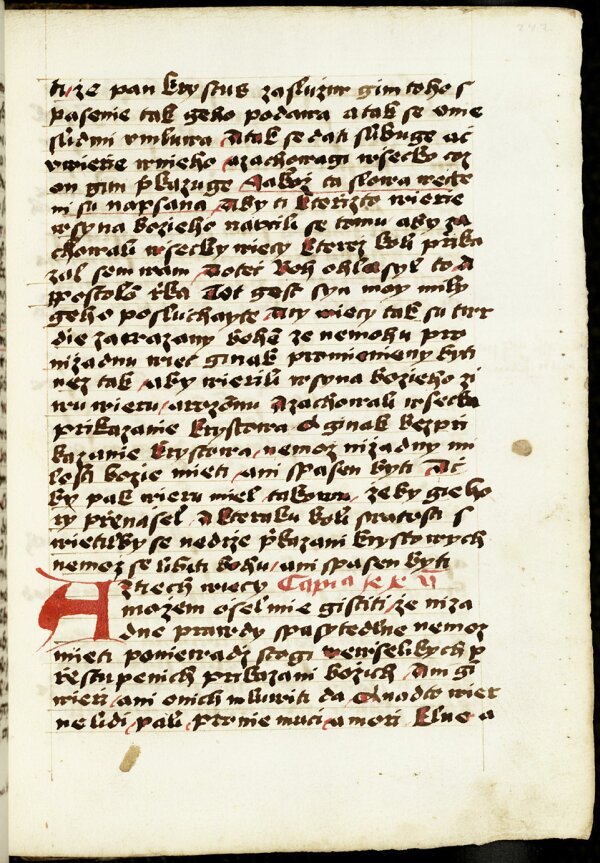 ti, že pan krystus zasluzuw gim toho s
pasenie tak geho podawa a tak se onie
s lidmi vmluwa A tak se dati slibuge ač
vwierie wnieho, a zachowagi wsecky coz
on gim p̄kazuge Aakoz ta slowa wečte
ni su napsana Aby ti kterizto wierie
w syna bozieho nawrili se tomu aby za
chowali wsecky wiecy kterez koli prika
zal sem wam Poteč Boh ohlasyl to A
postolom rka Tot gest syn moy mily
geho posluchayte A ty wiecy tak su twr
die zawazany bohem ze nemohu pro
nizadnu wiec ginak promienieny byti
nez tak, aby wierili w syna bozieho zi
wu wieru, a zachowali wsecka
prikazanie krystowa A ginak bez pri
kazanie krystowa, nemoz nizadny mi
losti bozie mieti, ani spasen byti Ač
by pak wieru miel, takowu, žeby gie ho
ry přenasel, A kteraku koli swatosti s
wietil by se nedrze p̄kazani krystowych
nemoz se libiti bohu, ani spasen byti
Aztiech wiecy Capitola
mozem osel mie gistiti, že niza
dne prawdy spasytedlne nemoz
mieti poniewadz stogi wewselikych p
restupenich prikazani bozich, Ani gi
wieri, ani o nich mluwiti da A nadto wier
ne lidi, pali, pro nie muci, a mori Klne a